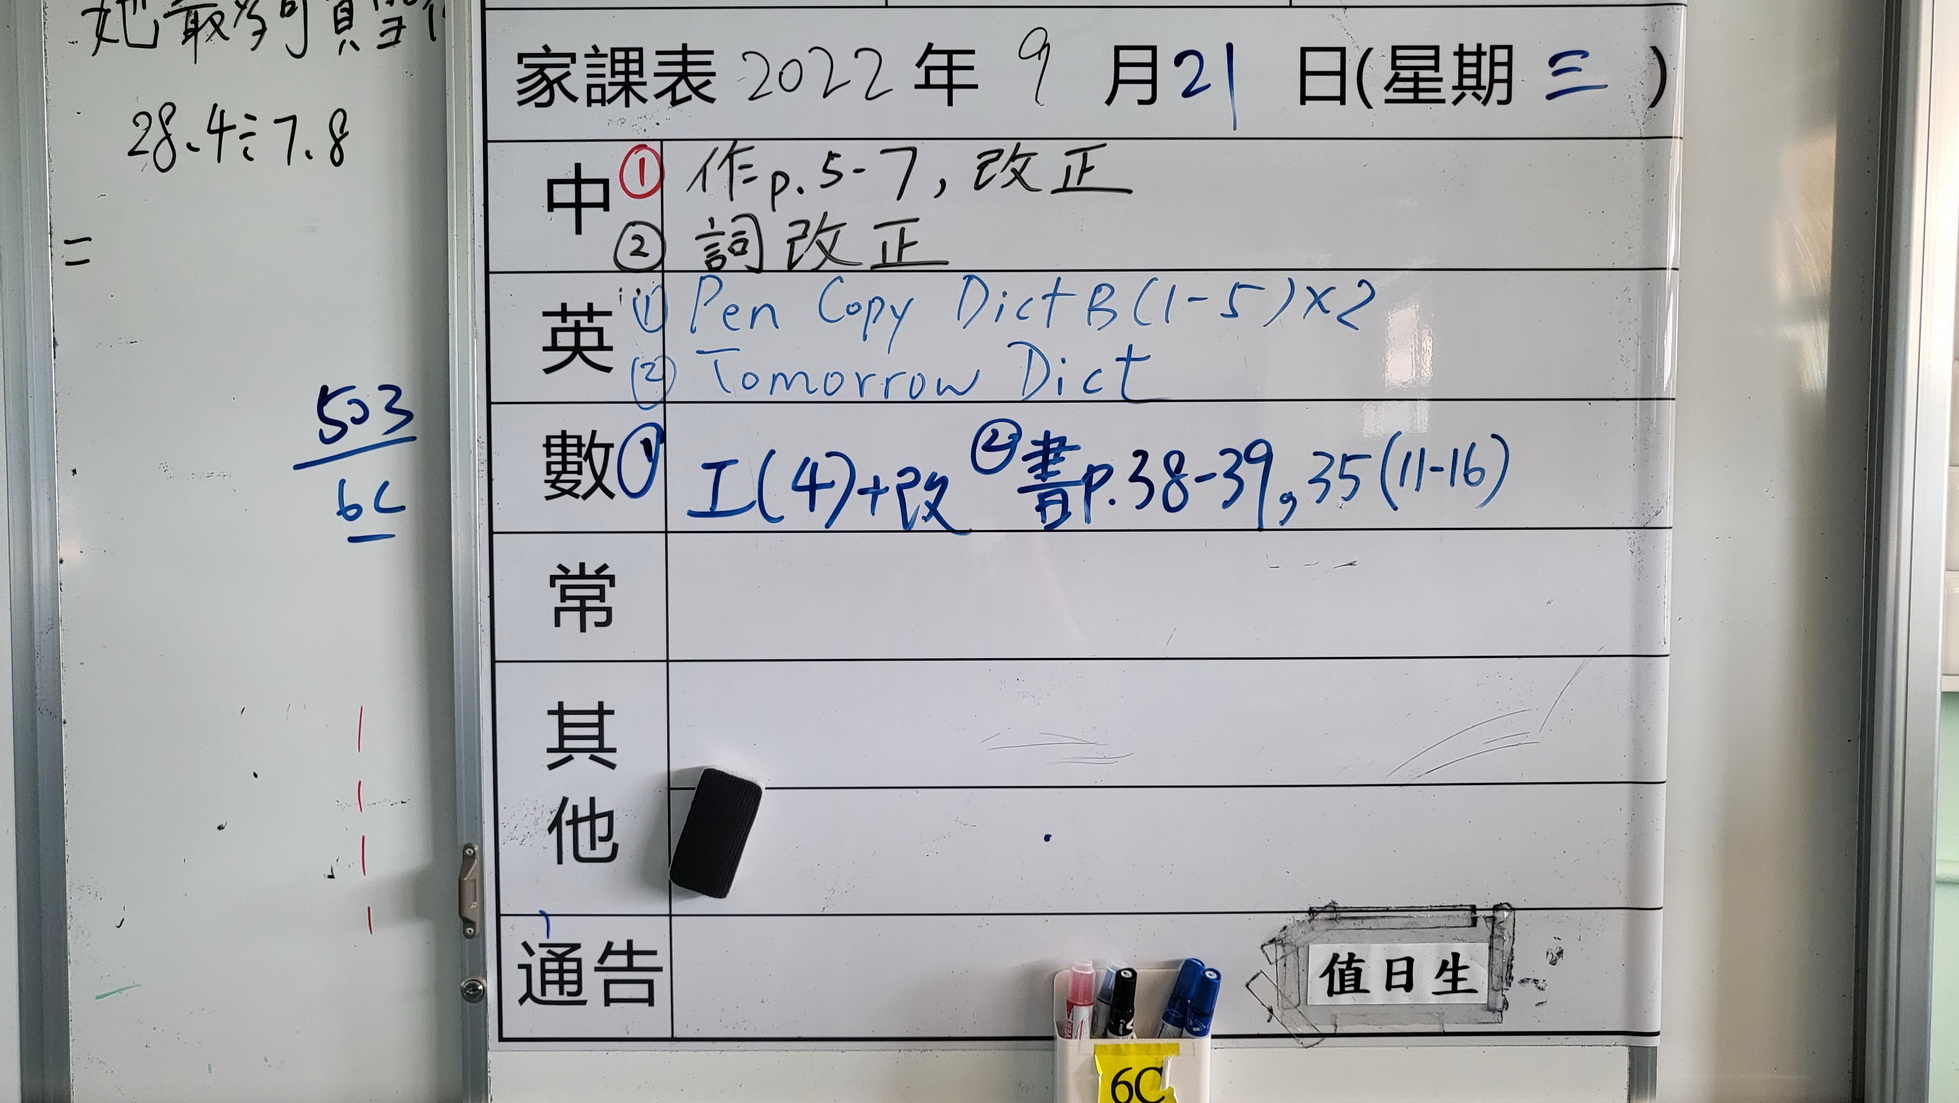 28.4÷7.8
=
503
6C
家課表 2022 年 9 月 21 日(星期 三 )
中 ① 作p.5-7, 改正
② 詞改正
英 ① Pen Copy Dict B (1-5)×2
② Tomorrow Dict
數 ① 工(4)+改 ② 書p.38-39, 35(11-16)
常
其他
通告
值日生
6C